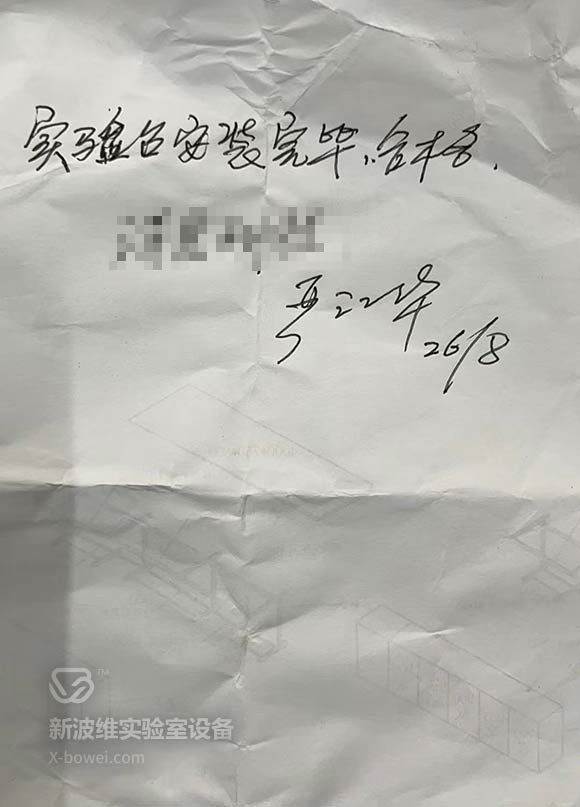 实验台安装完毕、合格、
26/8
新波维实验室设备
X-bowei.com